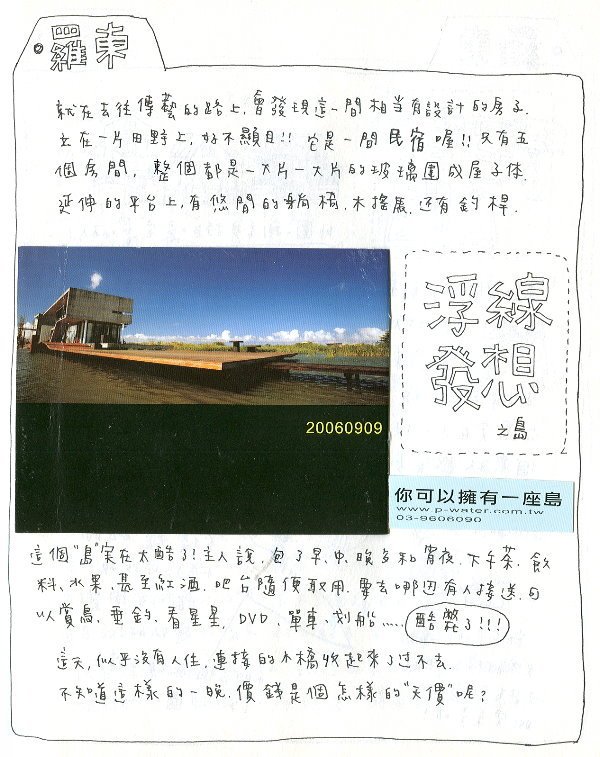 羅東
就在去往傳藝的路上,會發現這一間相當有設計的房子.
立在一片田野上,好不顯目!! 它是一間民宿喔!! 只有五
個房間, 整個都是一大片一大片的玻璃圍成屋子体.
延伸的平台上,有悠閒的躺椅.木搖馬.還有釣桿.
浮線
發想
之島
20060909
你可以擁有一座島
www.p-water.com.tw
03-9606090
這個"島"实在太酷了!主人說.包了早、中、晚多和宵夜.下午茶.飲
料、水果、甚至紅酒.吧台隨便取用.要去哪边有人接送.可
以賞鳥、垂釣、看星星, DVD、單車、划船..... 酷斃了!!!
這天,似乎沒有人住,連接的木橋收起來了过不去.
不知道這樣的一晚.價錢是個怎樣的"天價"呢?